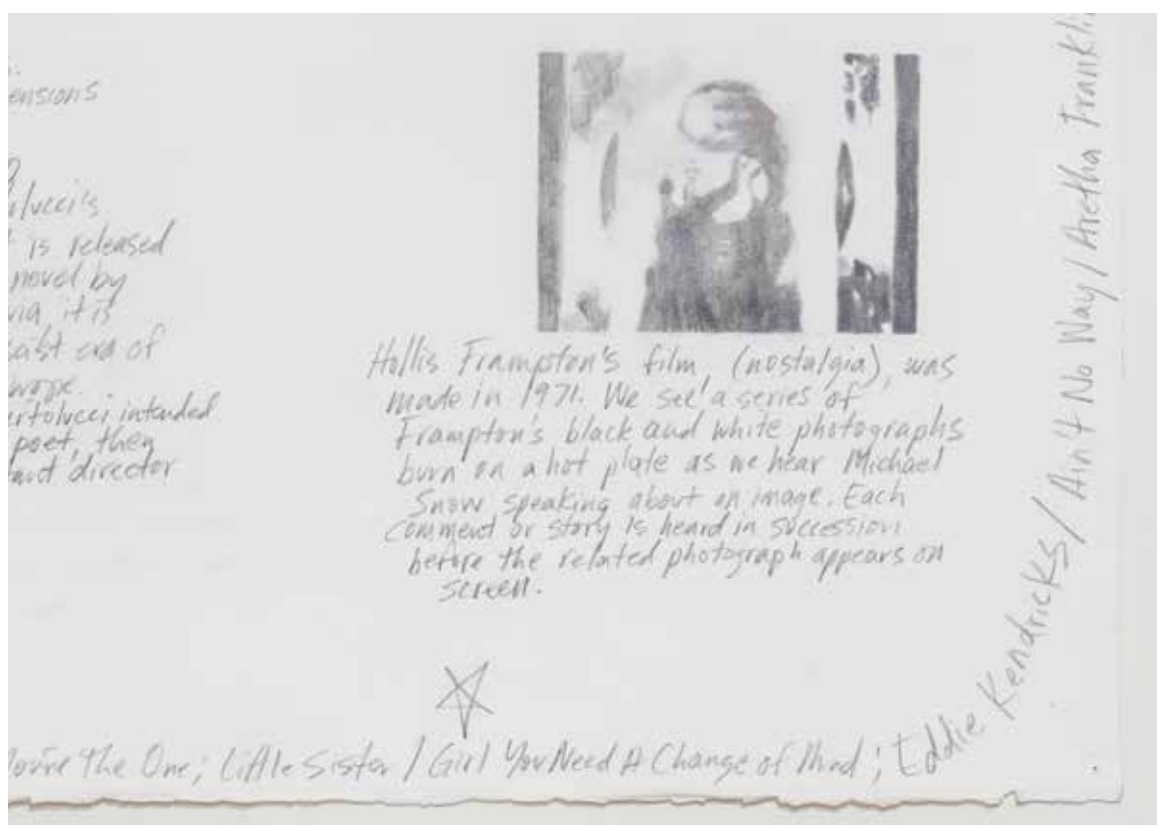 ensions
is released
novel by
it is
era of
ertolucci intended
poet, then
director
Hollis Frampton's film, (nostalgia), was
made in 1971. We see a series of
Frampton's black and white photographs
burn on a hot plate as we hear Michael
Snow speaking about an image. Each
comment or story is heard in succession
before the related photograph appears on
screen.
ou're The One; Little Sister / Girl You Need A Change of Mind; Eddie Kendricks / Ain't No Way / Aretha Franklin